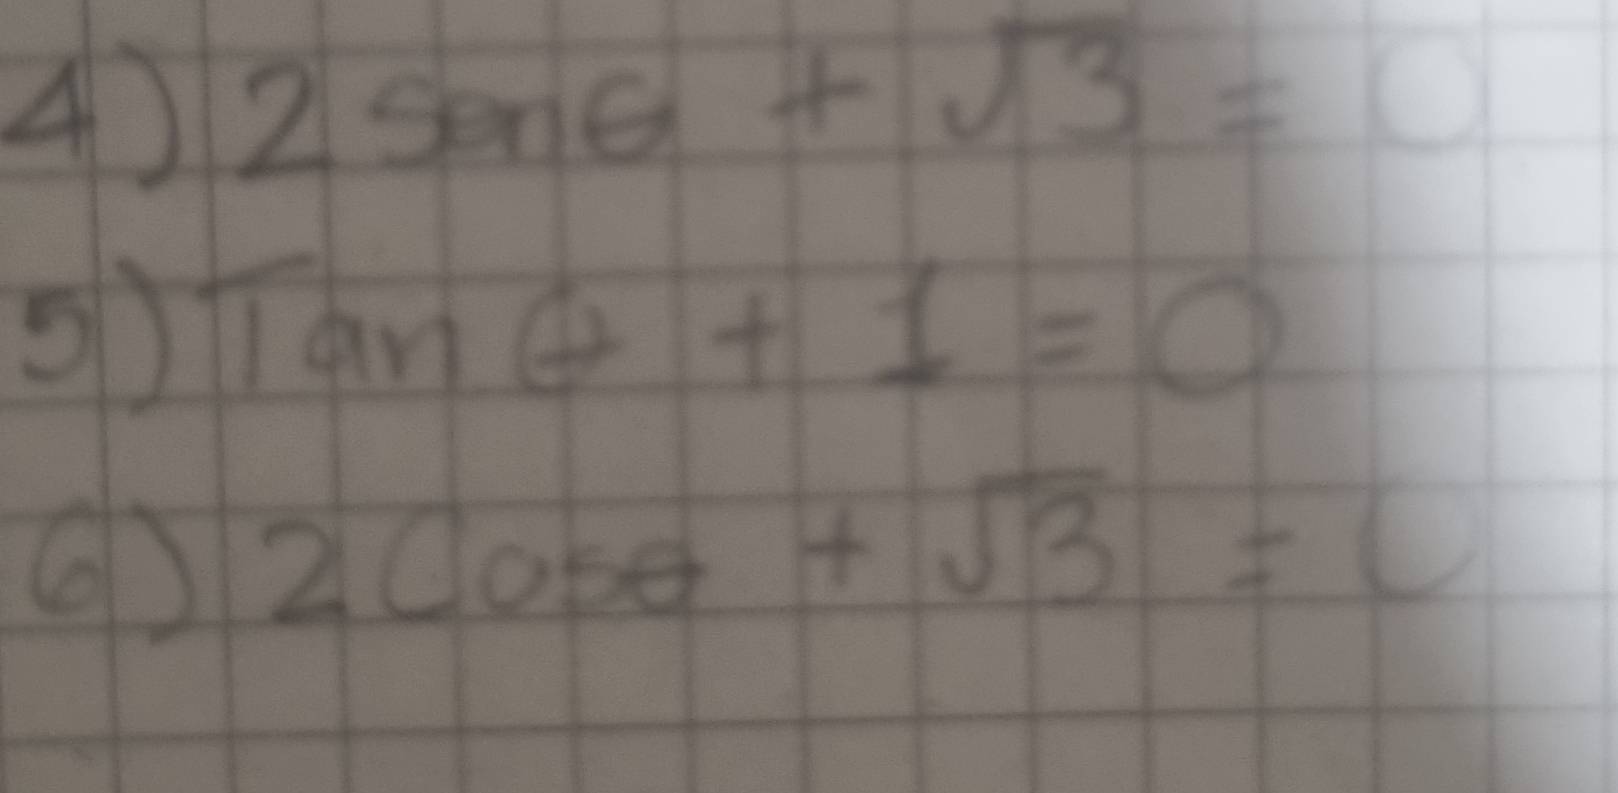 4) 2 Senθ + √3 = 0
5) Tan θ + 1 = 0
6) 2 Cosθ + √3 = 0